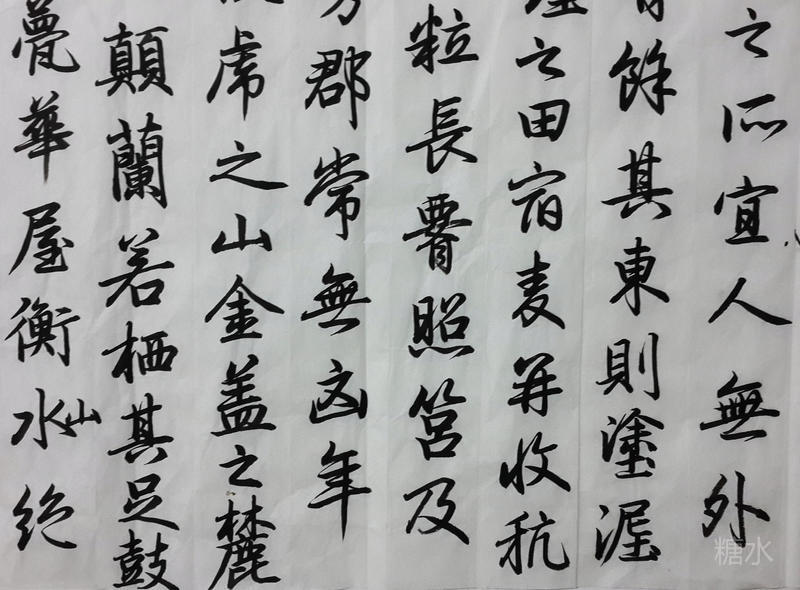 之所宜人無外
餘其東則塗埿
之田宿麦再收秔
粒長照筥及
郡常無凶年
虎之山金盖之麓
顛蘭若栖其足鼓
甍華屋衡水山絶
糖水